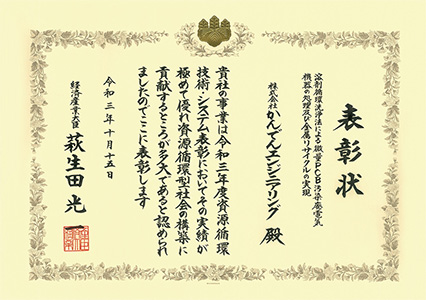 表彰状
溶剤循環洗浄法による微量PCB汚染廃電気
機器の処理及び金属リサイクルの実現
株式会社かんでんエンジニアリング 殿
貴社の事業は令和三年度資源循環
技術・システム表彰においてその実績が
極めて優れ資源循環型社会の構築に
貢献するところが多大であると認められ
ましたのでここに表彰します
令和三年十月十五日
経済産業大臣 萩生田光一